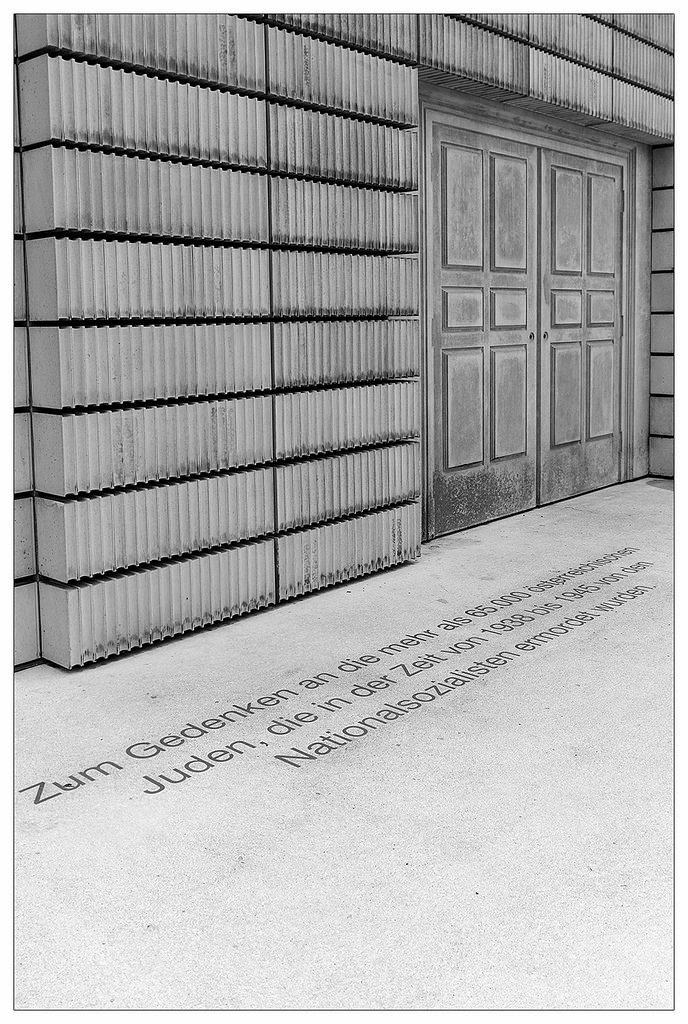 Zum Gedenken an die mehr als 65.000 österreichischen
Juden, die in der Zeit von 1938 bis 1945 von den
Nationalsozialisten ermordet wurden.